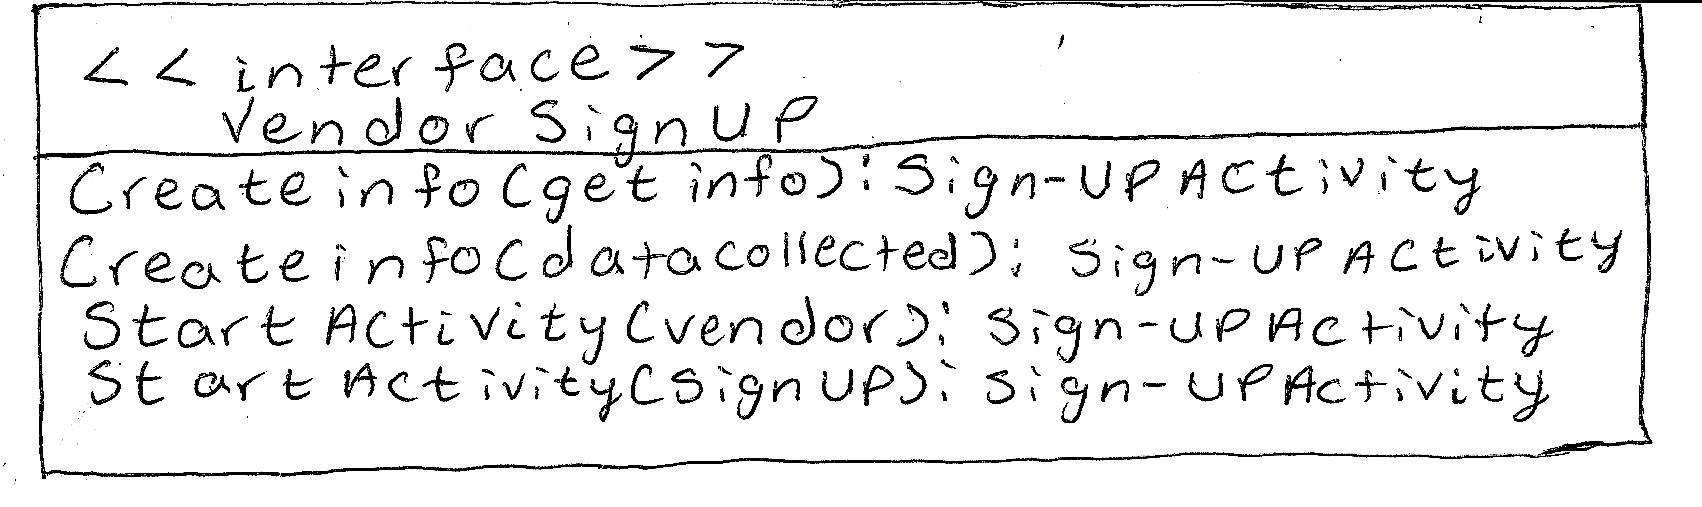 <<interface>>
Vendor SignUP
Createinfo(get info):Sign-UPActivity
Createinfo(datacollected): Sign-UPActivity
StartActivity(vendor): Sign-UPActivity
StartActivity(SignUP): Sign-UPActivity